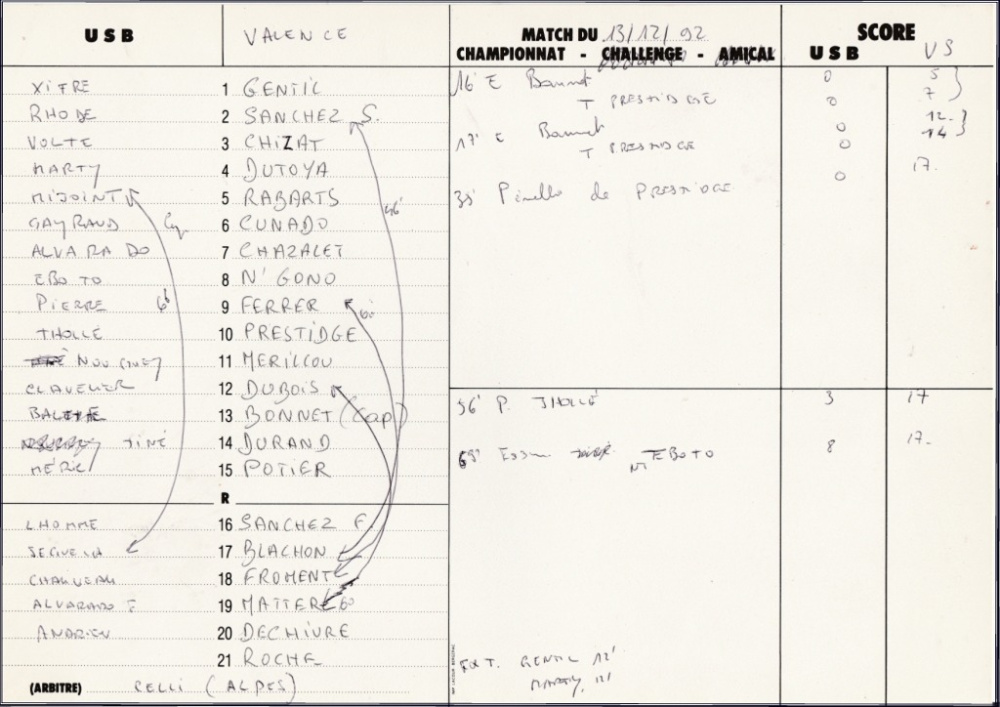 USB VALENCE MATCH DU 13/12/92 SCORE
CHAMPIONNAT - CHALLENGE - AMICAL USB VS
XIFRE 1 GENTIL
RHODE 2 SANCHEZ S.
VOLTE 3 CHIZAT
MARTY 4 DUTOYA
MIJOINT 5 RABARTS
GAYRAUD 6 CUNADO
ALVARADO 7 CHAZALET
EBOTO 8 N'GONO
PIERRE 9 FERRER
THOLLÉ 10 PRESTIDGE
11 MERILLOU
CLAVELIER 12 DUBOIS
13 BONNET (cap)
TINÉ 14 DURAND
MÉRIC 15 POTIER
R
LHOMME 16 SANCHEZ F.
17 BLACHON
18 FROMENT
ALVARADO F 19 MATTER 60
ANDRIEU 20 DECHIVRE
21 ROCHE
(ARBITRE) CELLI (ALPES)
16' E Bonnet 0 5
T PRESTIDGE 0 7
17' E Bonnet 0 12
T PRESTIDGE 0 14
35' Pénalité de PRESTIDGE 0 17
56' P. THOLLÉ 3 17
Essai N'TEBOTO 8 17
EXT. GENTIL 12'
MARTY 12'